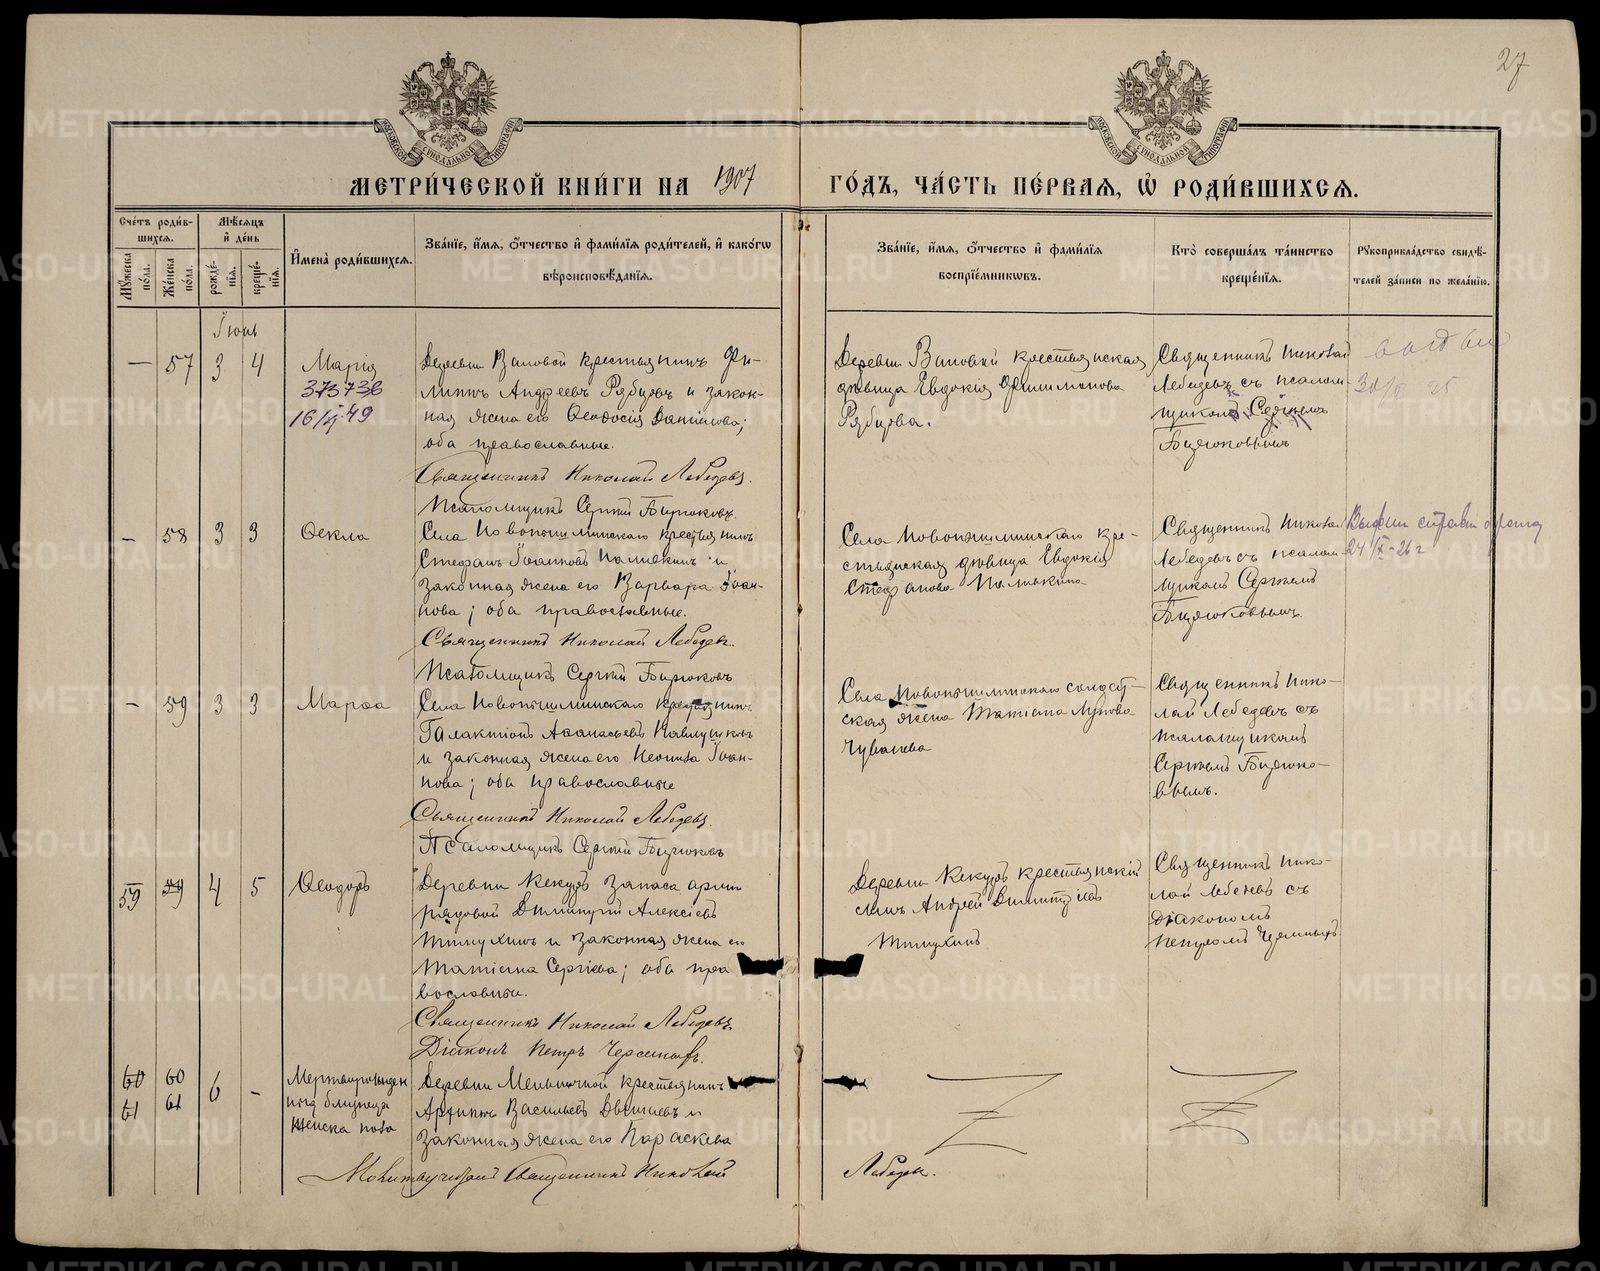 27
МОСКОВСКОЙ СѴНОДАЛЬНОЙ ТИПОГРАФІИ
МОСКОВСКОЙ СѴНОДАЛЬНОЙ ТИПОГРАФІИ
МЕТРИ́ЧЕСКОЙ КНИ́ГИ НА 1907 ГО́ДЪ, ЧА́СТЬ ПЕ́РВАЯ, Ѽ РОДИ́ВШИХСЯ.
Сче́тъ роди́вшихся.
Мꙋжеска по́ла.
Же́нска по́ла.
Мѣ́сяцъ и҆ де́нь
рожде́нїя.
креще́нїя.
И҆мена̀ роди́вшихся.
Зва́нїе, и҆́мя, ѻ҆́тчество и҆ фами́лїя роди́телей, и҆ како́гѡ вѣроисповѣ́данїя.
Зва́нїе, и҆́мя, ѻ҆́тчество и҆ фами́лїя воспрїе́мникѡвъ.
Кто̀ соверша́лъ та́инство креще́нїя.
Рꙋкоприкла́дство свидѣ́телей за́писи по жела́нїю.
Іюнь
— 57 3 4
Марія
373736
16/ 49
Деревни Валовой крестьянинъ Фи-
липпъ Андреевъ Рябцовъ и закон-
ная жена его Ѳеодосія Данилова;
оба православные.
Священникъ Николай Лебедевъ.
Псаломщикъ Сергій Бирюковъ.
Деревни Валовой крестьянская
дѣвица Евдокія Филимонова
Рябцова.
Священникъ Николай
Лебедевъ съ псалом-
щикомъ Сергіемъ
Бирюковымъ
— 58 3 3
Ѳекла
Села Новопышминскаго крестьянинъ
Стефанъ Іоанновъ Палькинъ и
законная жена его Варвара Іоан-
нова; оба православные.
Священникъ Николай Лебедевъ.
Псаломщикъ Сергій Бирюковъ
Села Новопышминскаго кре-
стьянская дѣвица Евдокія
Стефанова Палькина
Священникъ Николай
Лебедевъ съ псалом-
щикомъ Сергіемъ
Бирюковымъ.
24/X-26 г
— 59 3 3
Марѳа
Села Новопышминскаго крестьянинъ
Галактіонъ Аѳанасьевъ
и законная жена его Іоан-
нова; оба православные
Священникъ Николай Лебедевъ.
Псаломщикъ Сергій Бирюковъ
Села Новопышминскаго солдат-
ская жена Татіана Лукова
Чувашева
Священникъ Нико-
лай Лебедевъ съ
псаломщикомъ
Сергіемъ Бирюко-
вымъ.
59 59 4 5
Ѳеодоръ
Деревни Кекуръ запаса арміи
рядовой Димитрій Алексіевъ
и законная жена его
Татіана Сергіева; оба пра
вославные.
Священникъ Николай Лебедевъ.
Діаконъ Петръ
Деревни Кекуръ крестьянскій
сынъ Андрей Димитріевъ
Священникъ Нико-
лай Лебедевъ съ
діакономъ
Петромъ
60 60 6 —
61 61
Мертворожден
ныя близнеца
женска пола
Деревни Мельничной крестьянинъ
Васильевъ и
законная жена его Параскева
Священникъ Николай
Лебедевъ.
METRIKI.GASO-URAL.RU